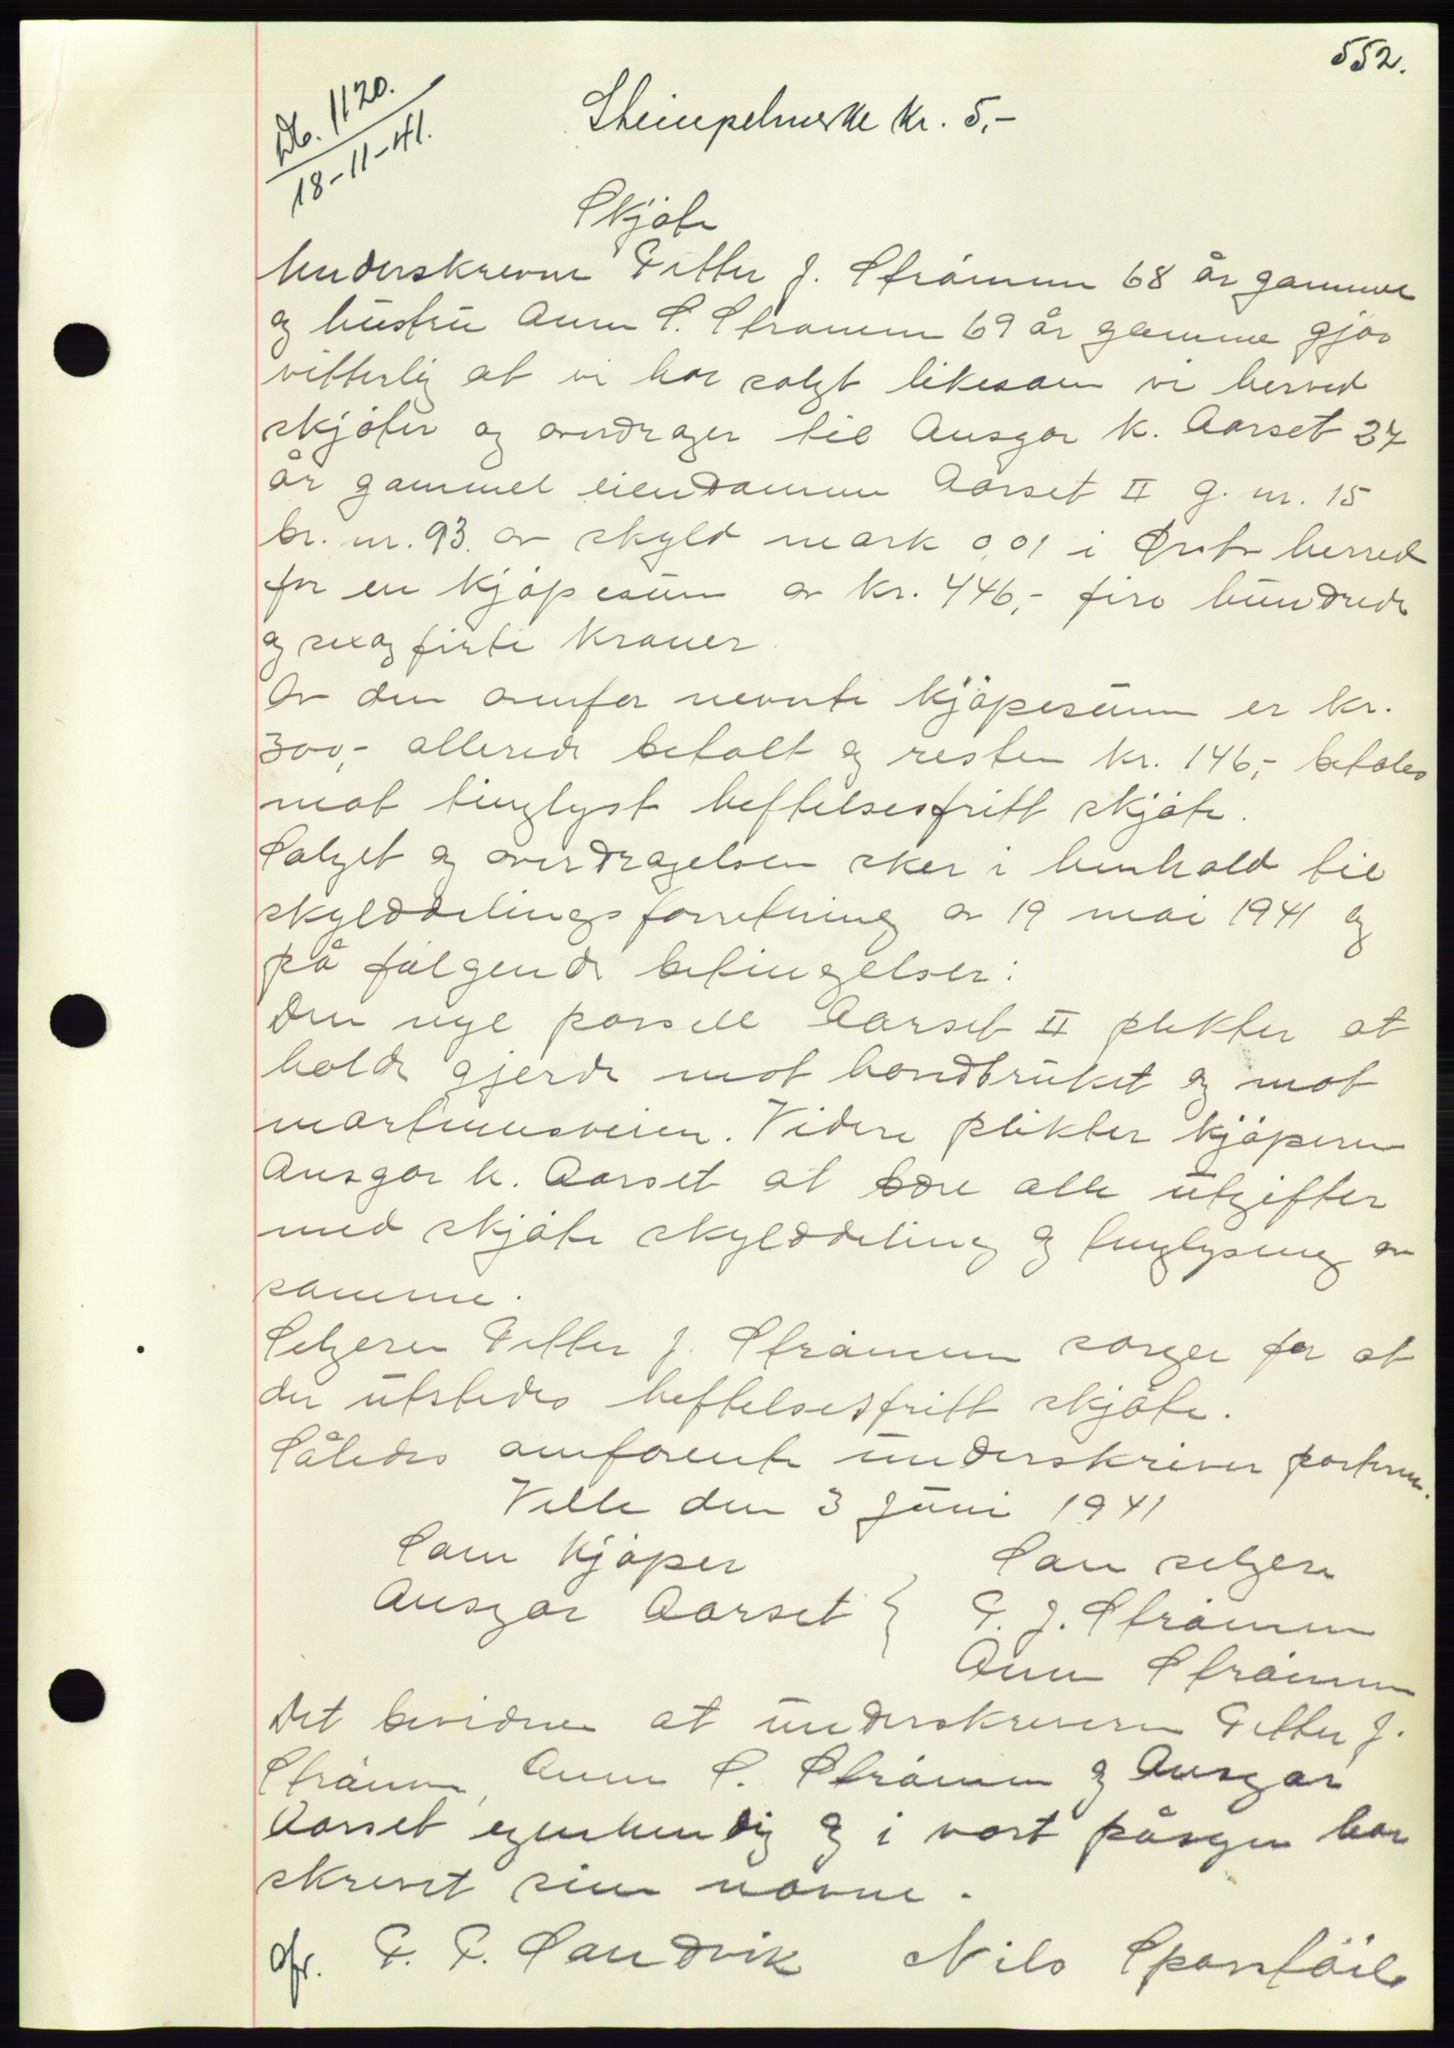 552.
Db. 1120.
18-11-41.
Stempelmerke kr. 5,-
Skjøte
Underskrevne Petter J. Strømme 68 år gammel
og hustru Anna S. Strømme 69 år gamme gjør
vitterlig at vi har solgt likesom vi herved
skjøter og overdrager til Ansgar K. Aarset 37
år gammel eiendommen Aarset II g. nr. 15
br. nr. 93. av skyld mark 0,01 i Ørsta herred
for en kjøpesum av kr. 446,- fire hundrede
og sex og firti kroner.
Av den ovenfor nevnte kjøpesum er kr.
300,- allerede betalt og resten kr. 146,- betales
mot tinglyst heftelsesfritt skjøte.
Salget og overdragelsen sker i henhold til
skylddelingsforretning av 19 mai 1941 og
på følgende betingelser:
Den nye parsell Aarset II plikter at
holde gjerde mot hovedbruket og mot
martinusveien. Videre plikter kjøperen
Ansgar K. Aarset at bære alle utgifter
med skjøte skylddeling og tinglysing av
samme.
Selgeren Petter J. Strømme sørger for at
der utstedes heftelsesfritt skjøte.
Således omforente underskriver partene.
Velle den 3 Juni 1941
Som kjøper
Som selgere
Ansgar Aarset
P. J. Strømme
Anna Strømme
Det bevidnes at underskriverne Petter J.
Strømme, Anna S. Strømme og Ansgar
Aarset egenhendig og i vort påsyn har
skrevet sine navne.
P. P. Sandvik Nils